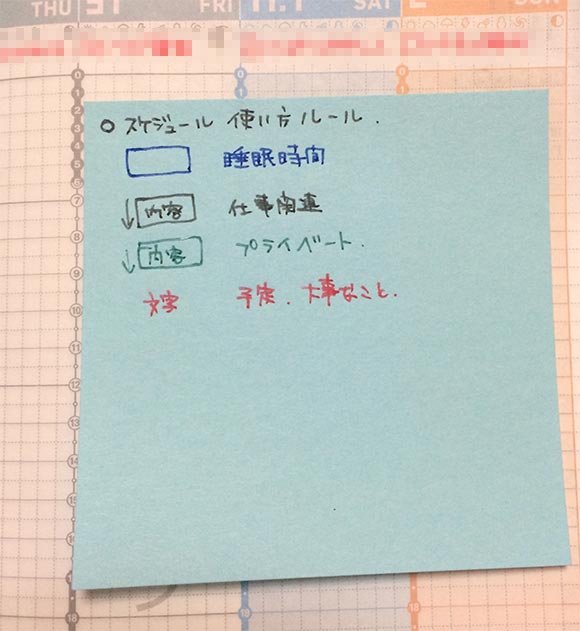 THU 31 FRI 11.1 SAT 2 SUN
0 0 0
1
2
3
4
5
6
7
8
9
10
11
12
13
14
15
18 18 18
○スケジュール 使い方ルール.
睡眠時間
↓ 内容 仕事関連
↓ 内容 プライベート.
文字 予定、大事なこと.